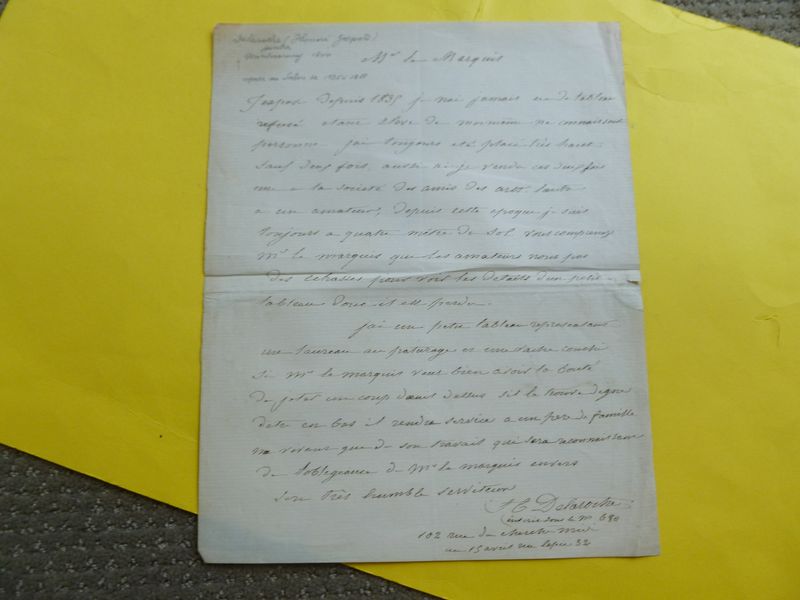 Delaroche (Honoré Léopold)
peintre
Mr le Marquis
expose au Salon de
J'expose depuis 1835 je nai jamais eu de tableau
refusé etant eleve de moi meme ne connaissant
personne jai toujours eté placé très haut
sauf deux fois, aussi ai je vendu ces deux fois
une a la société des amis des arts lautre
a un amateur, depuis cette epoque je suis
toujours a quatre mètre de sol vous comprenez
Mr le marquis que les amateurs nont pas
des echasses pour voir les details d'un petit
tableau donc il est perdu.
jai un petit tableau representant
une taureau au paturage et une vache couché
si Mr le marquis veut bien avoir la bonté
de jeter un coup doeil dessus sil le trouve digne
detre en bas il rendra service a un père de famille
ne vivant que de son travail qui sera reconnaissant
de lobligeance de Mr le marquis envers
son très humble serviteur
H Delaroche
inscrit sous le no 680
102 rue du cherche midi
au 15 avril rue 32